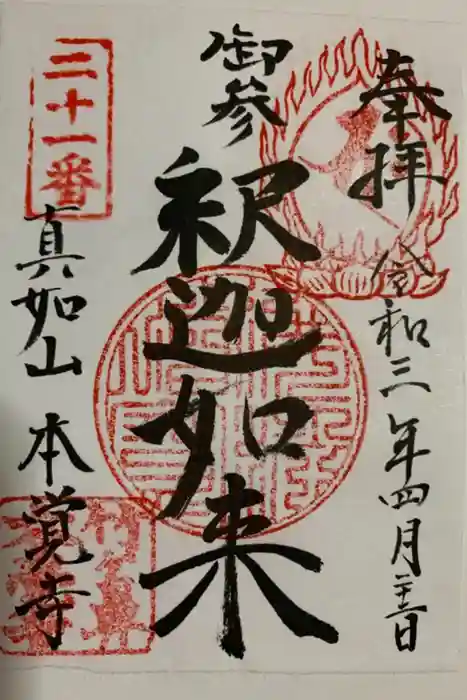 奉拝
令和三年四月二十三日
御参
釈迦如来
三十一番
真如山 本覚寺